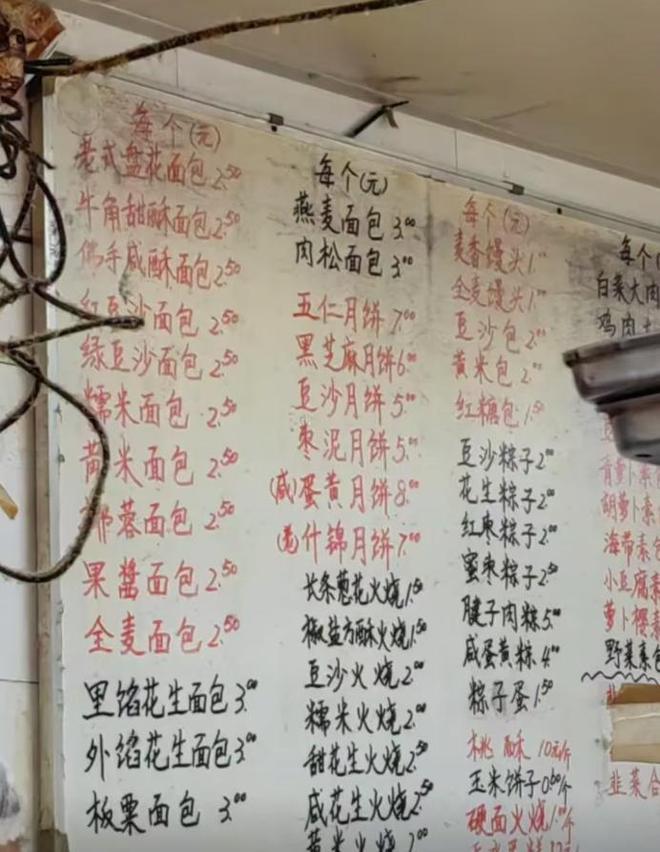 每个(元)
老式盘花面包 2.50
牛角甜酥面包 2.50
佛手咸酥面包 2.50
红豆沙面包 2.50
绿豆沙面包 2.50
糯米面包 2.50
黄米面包 2.50
蓉面包 2.50
果酱面包 2.50
全麦面包 2.50
里馅花生面包 3.00
外馅花生面包 3.00
板栗面包 3.00
每个(元)
燕麦面包 3.00
肉松面包 3.00
五仁月饼 7.00
黑芝麻月饼 6.00
豆沙月饼 5.00
枣泥月饼 5.00
(咸)蛋黄月饼 8.00
什锦月饼 7.00
长条葱花火烧 1.50
椒盐方酥火烧 1.50
豆沙火烧 2.00
糯米火烧 2.00
甜花生火烧 2.50
咸花生火烧 2.50
黄米火烧 2.00
每个(元)
麦香馒头 1.00
全麦馒头 1.00
豆沙包 2.00
黄米包 2.00
红糖包 1.50
豆沙粽子 2.00
花生粽子 2.00
红枣粽子 2.00
蜜枣粽子 2.50
腱子肉粽 5.00
咸蛋黄粽 4.00
粽子蛋 1.50
桃酥 10元/斤
玉米饼子 0.60/个
硬面火烧 1.00/个
每个(
白菜大肉
鸡肉
青萝卜素
胡萝卜素
海带素包
小豆腐素
萝卜樱素
野菜素包
韭菜合